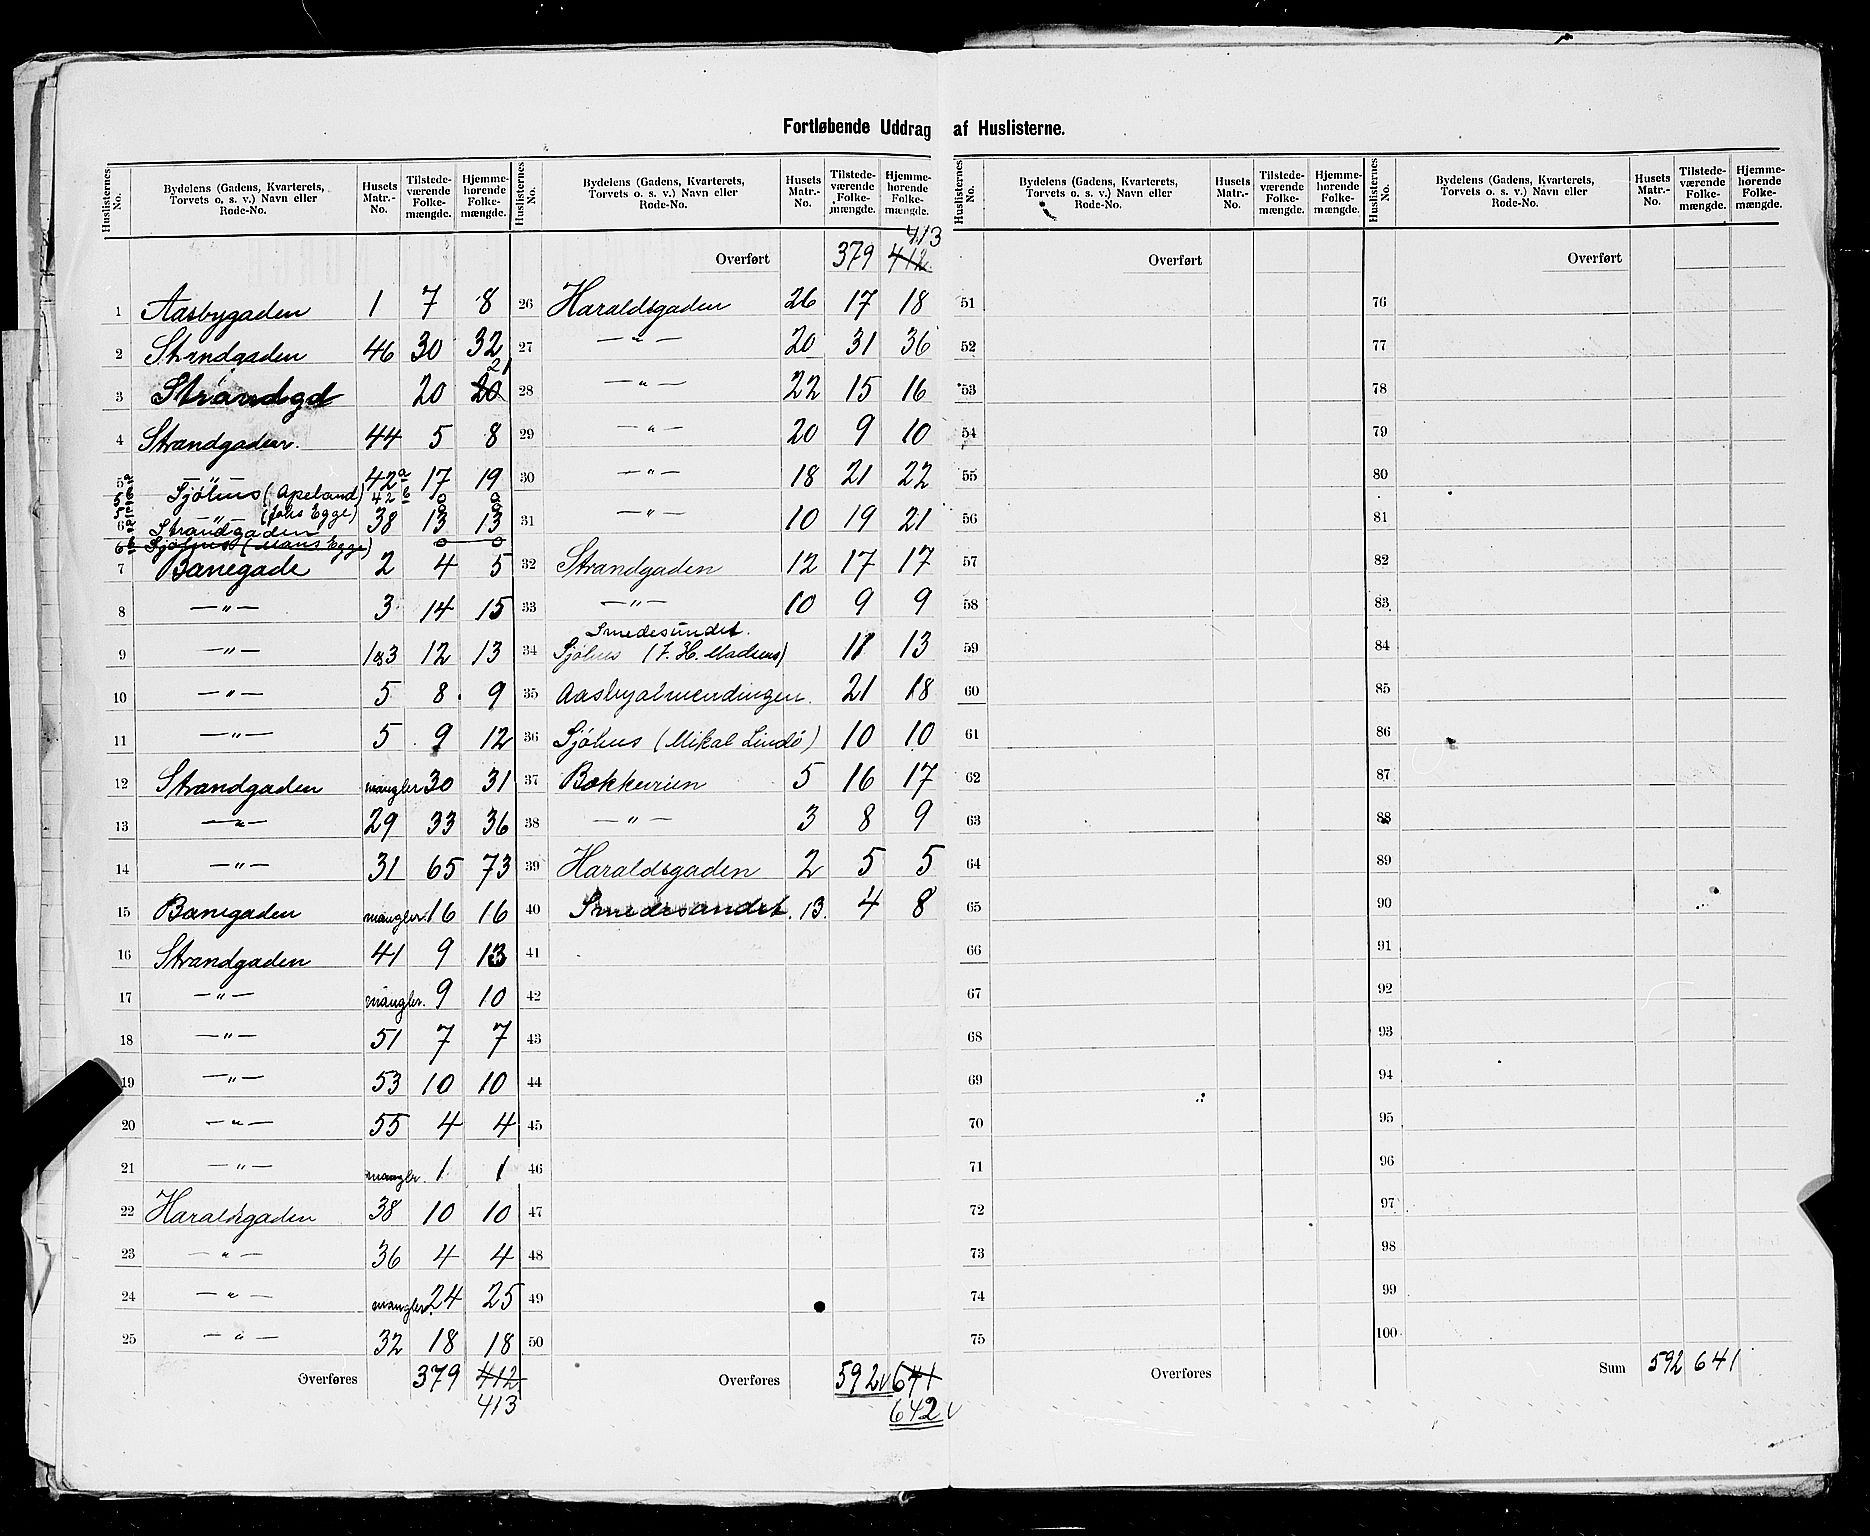 Fortløbende Uddrag af Huslisterne.
Huslisternes No. | Bydelens (Gadens, Kvarterets, Torvets o. s. v.) Navn eller Rode-No. | Husets Matr.-No. | Tilstedeværende Folkemængde. | Hjemmehørende Folkemængde.
1 Aasbygaden 1 7 8
2 Strandgaden 46 30 32
3 Strandgd 20 20 21
4 Strandgaden 44 5 8
5 a — " — 42 a 17 19
Sjöhus (Apeland) 42 b 0 0
— " — (Johs Egge) 0 0
6 Strandgaden 38 13 13
6 b Sjöhus (Mons Egge) 0 0
7 Banegade 2 4 5
8 — " — 3 14 15
9 — " — 1&3 12 13
10 — " — 5 8 9
11 — " — 5 9 12
12 Strandgaden mangler 30 31
13 — " — 29 33 36
14 — " — 31 65 73
15 Banegaden mangler. 16 16
16 Strandgaden 41 9 13
17 — " — mangler. 9 10
18 — " — 51 7 7
19 — " — 53 10 10
20 — " — 55 4 4
21 — " — mangler. 1 1
22 Haraldsgaden 38 10 10
23 — " — 36 4 4
24 — " — mangler. 24 25
25 — " — 32 18 18
Overføres 379 412
413
Huslisternes No. | Bydelens (Gadens, Kvarterets, Torvets o. s. v.) Navn eller Rode-No. | Husets Matr.-No. | Tilstedeværende Folkemængde. | Hjemmehørende Folkemængde.
413
Overført 379 412
26 Haraldsgaden 26 17 18
27 — " — 20 31 36
28 — " — 22 15 16
29 — " — 20 9 10
30 — " — 18 21 22
31 — " — 10 19 21
32 Strandgaden 12 17 17
33 — " — 10 9 9
Smedesundet.
34 Sjöhus (F. H. Madsens) 11 13
35 Aasbyalmendingen. 21 18
36 Sjöhus (Mikal Lindö) 10 10
37 Bakkeveien 5 16 17
38 — " — 3 8 9
39 Haraldsgaden 2 5 5
40 Smedesundet. 13. 4 8
41
42
43
44
45
46
47
48
49
50
Overføres 592 641
642
Huslisternes No. | Bydelens (Gadens, Kvarterets, Torvets o. s. v.) Navn eller Rode-No. | Husets Matr.-No. | Tilstedeværende Folkemængde. | Hjemmehørende Folkemængde.
Overført
51
52
53
54
55
56
57
58
59
60
61
62
63
64
65
66
67
68
69
70
71
72
73
74
75
Overføres
Huslisternes No. | Bydelens (Gadens, Kvarterets, Torvets o. s. v.) Navn eller Rode-No. | Husets Matr.-No. | Tilstedeværende Folkemængde. | Hjemmehørende Folkemængde.
Overført
76
77
78
79
80
81
82
83
84
85
86
87
88
89
90
91
92
93
94
95
96
97
98
99
100
Sum 592 641